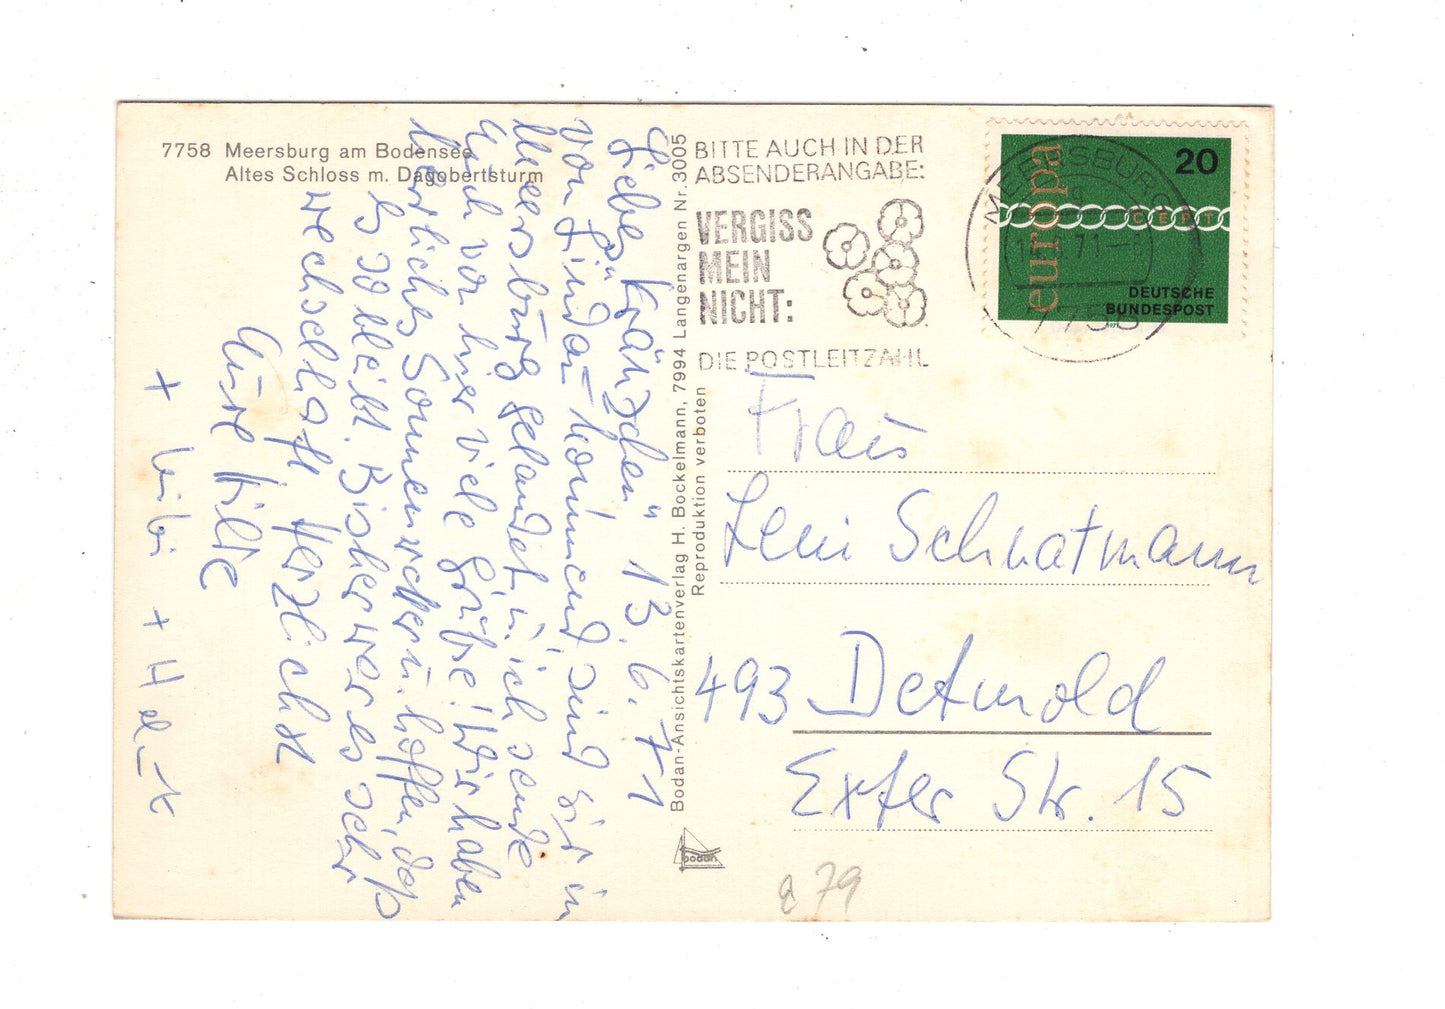 7758 Meersburg am Bodensee
Altes Schloss m. Dagobertsturm
Liebes "Kränzchen" 13.6.71
Von Lindau kommend sind wir in
Meersburg gelandet u. ich sende
Euch von hier viele Grüße! Wir haben
herrliches Sonnenwetter u. hoffen, daß
es so bleibt. Bisher war es sehr
wechselhaft Herzlichst
Eure Hilde
+ +
Bodan-Ansichtskartenverlag H. Bockelmann, 7994 Langenargen Nr. 3005
Reproduktion verboten
bodan
BITTE AUCH IN DER
ABSENDERANGABE:
VERGISS
MEIN
NICHT:
DIE POSTLEITZAHL
MEERSBURG
71-
7758
europa
20
CEPT
DEUTSCHE
BUNDESPOST
Frau
Leni Schnatmann
493 Detmold
Exter Str. 15
a 79